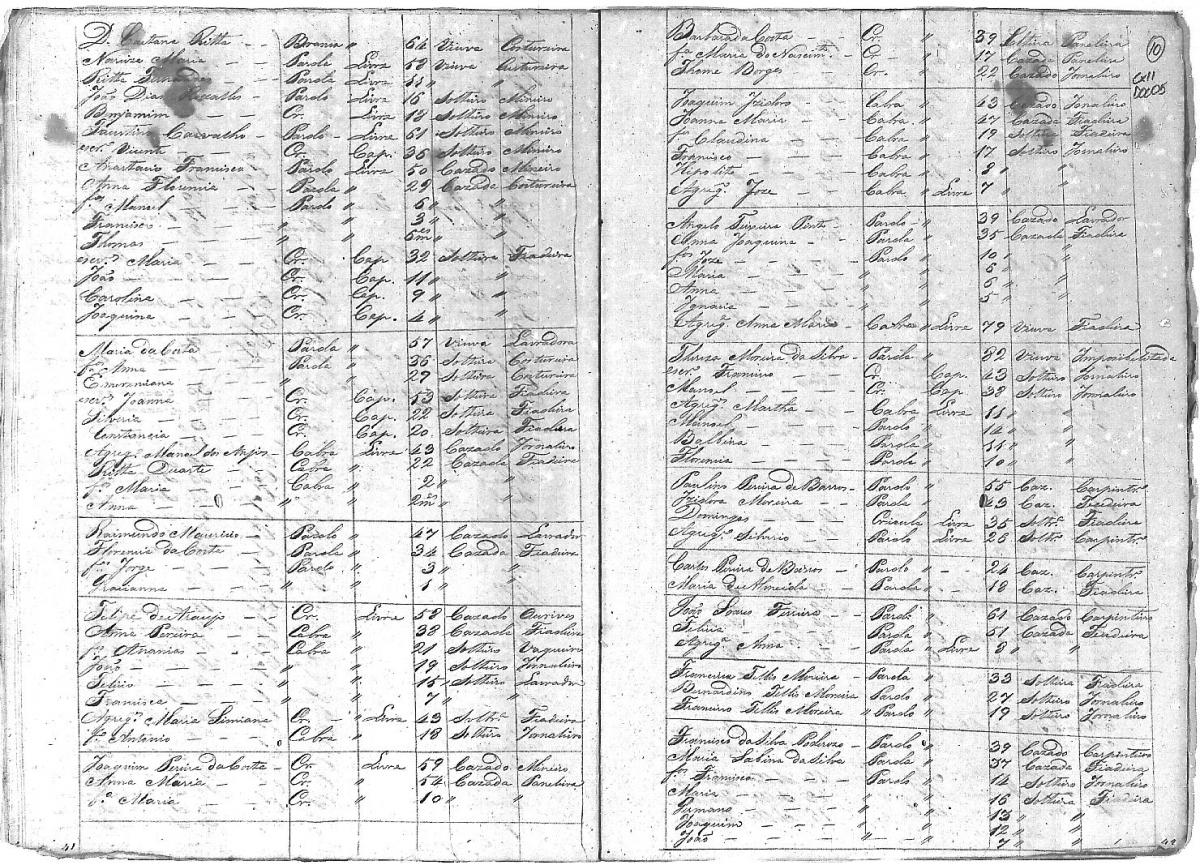 D. Caetana Ritta - - Branca " 64 Viuva Costureira
Narciza Maria - - Parda Livre 52 Viuva Costureira
Ritta - - Parda Livre 11 " "
João Dias - - Pardo Livre 16 Solteiro Mineiro
Benjamim - - Cr. Livre 13 Solteiro Mineiro
Faustino Carvalho - Pardo - Livre 61 Solteiro Mineiro
escr.º Vicente - - Cr. Cap. 36 Solteiro Mineiro
Anastacio Francisco - Pardo Livre 50 Cazado Mineiro
Anna Florencia - - Parda " 29 Cazada Costureira
fº Manoel - - Pardo " 6 " "
Francisco - - " " 3 " "
Thomas - - " " 5 m.es " "
escr.ª Maria - - Cr. Cap. 32 Solteira Fiadeira
João - - Cr. Cap. 11 " "
Carolina - - Cr. Cap. 9 " "
Joaquina - - Cr. Cap. 4 " "
Maria da Costa - Parda " 57 Viuva Lavradora
fª Anna - - Parda " 36 Solteira Costureira
Emerenciana - - " " 29 Solteira Costureira
escr.ª Joanna - - Cr. Cap. 53 Solteira Fiadeira
Silveria - - Cr. Cap. 22 Solteira Fiadeira
Constancia - - Cr. Cap. 20 Solteira Fiadeira
Agreg.º Manoel dos Anjos - Cabra Livre 43 Cazado Jornaleiro
Ritta Duarte - - Cabra " 22 Cazada Fiadeira
fª Maria - - Cabra " 2 " "
Anna - - " " 2 m.es " "
Raimundo Mauricio - Pardo " 47 Cazado Lavrador
Florencia da Costa - Parda " 34 Cazada Fiadeira
fº Jorge - - Pardo " 3 " "
- - " " 1 " "
Felipe de Araujo - Cr. Livre 52 Cazado Ourives
Anna Pereira - - Cabra " 38 Cazada Fiadeira
fº Ananias - - Cabra " 21 Solteiro Vaqueiro
João - - " " 19 Solteiro Jornaleiro
- - " " 15 Solteiro Lavrador
Francisca - - " " 7 " "
Agreg.ª Maria Simiana Cr. - " Livre 43 Solt.ª Fiadeira
fº Antonio - - Cabra " 18 Solteiro Jornaleiro
Joaquim Pereira da Costa - Cr. Livre 59 Cazado Mineiro
Anna Maria - - Cr. " 54 Cazada Paneleira
fª Maria - - Cr. " 10 " "
41
Barbara da Costa - Cr. " 39 Solteira Paneleira
fª Maria do Nascim.to - Cr. " 17 Cazada Paneleira
Thome Borges - Cr. " 22 Cazado Jornaleiro
10
Cx11
Doc05
Joaquim Izidro - Cabra " 43 Cazado Jornaleiro
Joanna Maria - Cabra " 47 Cazada Fiadeira
fª Claudina - - Cabra " 19 Solteira Fiadeira
Francisco - - Cabra " 17 Solteiro Jornaleiro
Hipolito - - Cabra " 8 " "
Agreg.º Joze - - Cabra " Livre 7 " "
Angelo Ferreira Pinto - Pardo - " 39 Cazado Lavrador
Anna Joaquina - Parda " 35 Cazada Fiadeira
fº Joze - - Pardo " 10 " "
Maria - - " " 6 " "
Anna - - " " 6 " "
Ignacia - - " " 5 " "
Agreg.ª Anna Maria - Cabra " Livre 79 Viuva Fiadeira
Thereza Moreira da Silva - Parda " 82 Viuva Impossibelitada
escr.º Francisco - - Cr. Cap. 43 Solteiro Jornaleiro
Manoel - - Cr. Cap. 38 Solteiro Jornaleiro
Agreg.ª Martha - - Cabra Livre 11 " "
Manoel - - Pardo " 14 " "
Balbina - - Parda " 11 " "
Florencia - - Parda " 10 " "
Paulino Pereira de Barros - Pardo " 55 Caz. Carpintr.º
Izidora Moreira - Parda " 43 Caz. Fiadeira
Domingas - - Crioula Livre 35 Solt.ª Fiadeira
Agreg.º Silverio - - Pardo Livre 26 Solt.º Carpintr.º
Carlos Pereira de Barros - Pardo " 24 Caz. Carpintr.º
Maria de Almeida - Parda " 18 Caz. Fiadeira
João Soares Ferreira - Pardo " 61 Cazado Carpinteiro
- - Parda " 51 Cazada Fiadeira
Agreg.ª Anna - - Parda " Livre 8 " "
Francisca Telles Moreira - Parda " 33 Solteira Fiadeira
Bernardino Telles Moreira Pardo " 27 Solteiro Jornaleiro
Francisco Telles Moreira " Pardo " 19 Solteiro Jornaleiro
Francisco da Silva Pedrozo - Pardo " 39 Cazado Carpinteiro
Maria Sabina da Silva Parda " 37 Cazada Fiadeira
fº Francisco - - Pardo " 14 Solteiro Jornaleiro
Maria - - " " 16 Solteira Fiadeira
Germano - - " " 13 " "
Joaquim - - " " 12 " "
João - - " " 7 " "
42